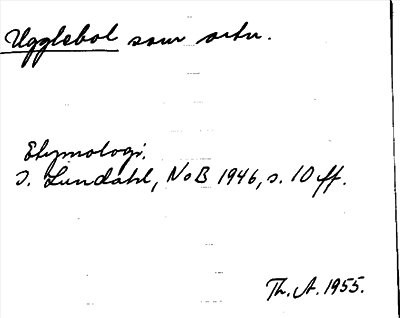 Ugglebol som ortn.
Etymologi.
I. Lundahl, NoB 1946, s. 10 ff.
Th. A. 1955.